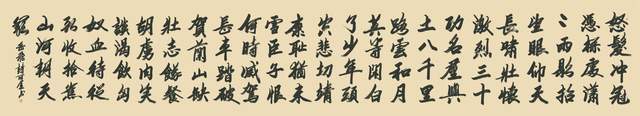 怒髮冲冠
憑栏處潇
〻雨歇抬
望眼仰天
長啸壯懷
激烈三十
功名塵與
土八千里
路雲和月
莫等闲白
了少年頭
空悲切靖
康耻猶未
雪臣子恨
何時滅駕
長車踏破
賀蘭山缺
壯志饑餐
胡虜肉笑
談渴飲匈
奴血待從
頭收拾舊
山河朝天
闕 岳飛